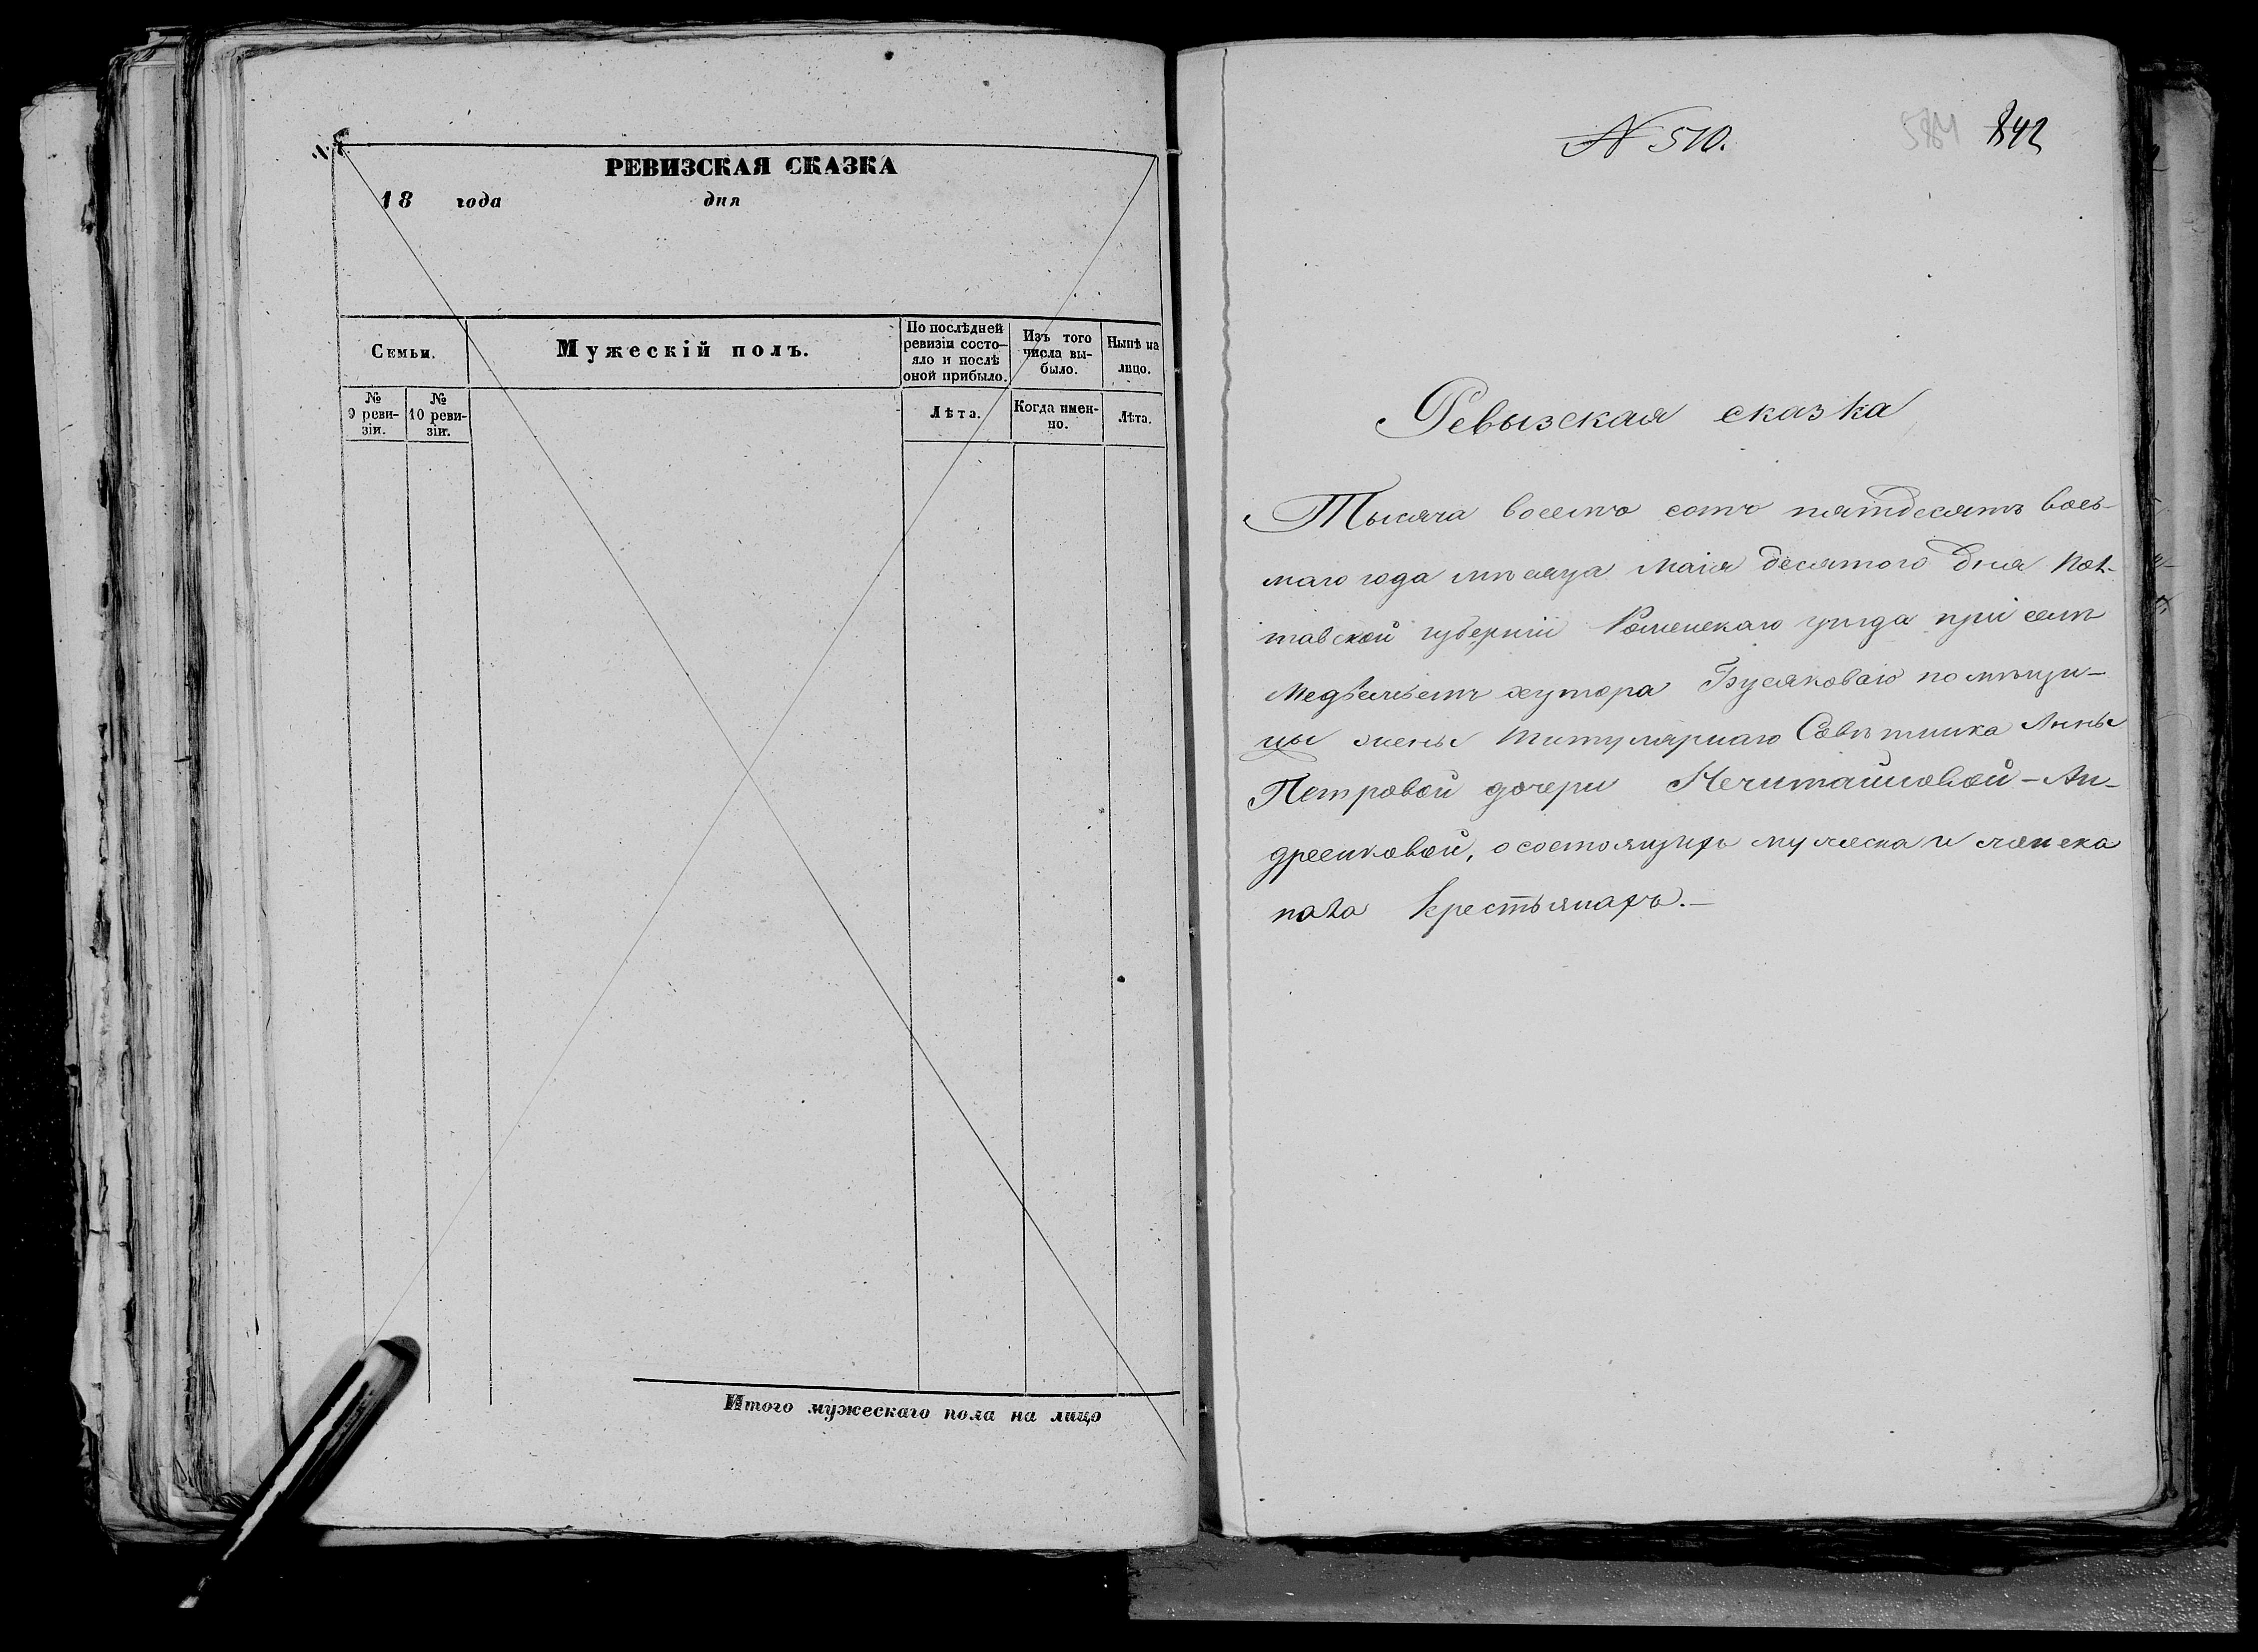 РЕВИЗСКАЯ СКАЗКА
18 года дня
Семьи.
Мужескій полъ.
По послѣдней ревизіи состо-
яло и послѣ
оной прибыло.
Изъ того
числа вы-
было.
Нынѣ на
лицо.
№
9 реви-
зіи.
№
10 реви-
зіи.
Лѣта.
Когда имен-
но.
Лѣта.
Итого мужескаго пола на лицо
№ 510.
584 842
Ревызская сказка
Тысяча восемъ сотъ пятдесятъ вось-
маго года мѣсяца Маія десятого дня Пол-
тавской губерніи Роменскаго уѣзда при селѣ
хутора Бусяковаго помѣщи-
цы жены Титулярнаго Совѣтника Анны
Петровой дочери Нечитайловой - Ан-
дреенковой, о состоящихъ мужеска и женска
пола крестьянахъ.-